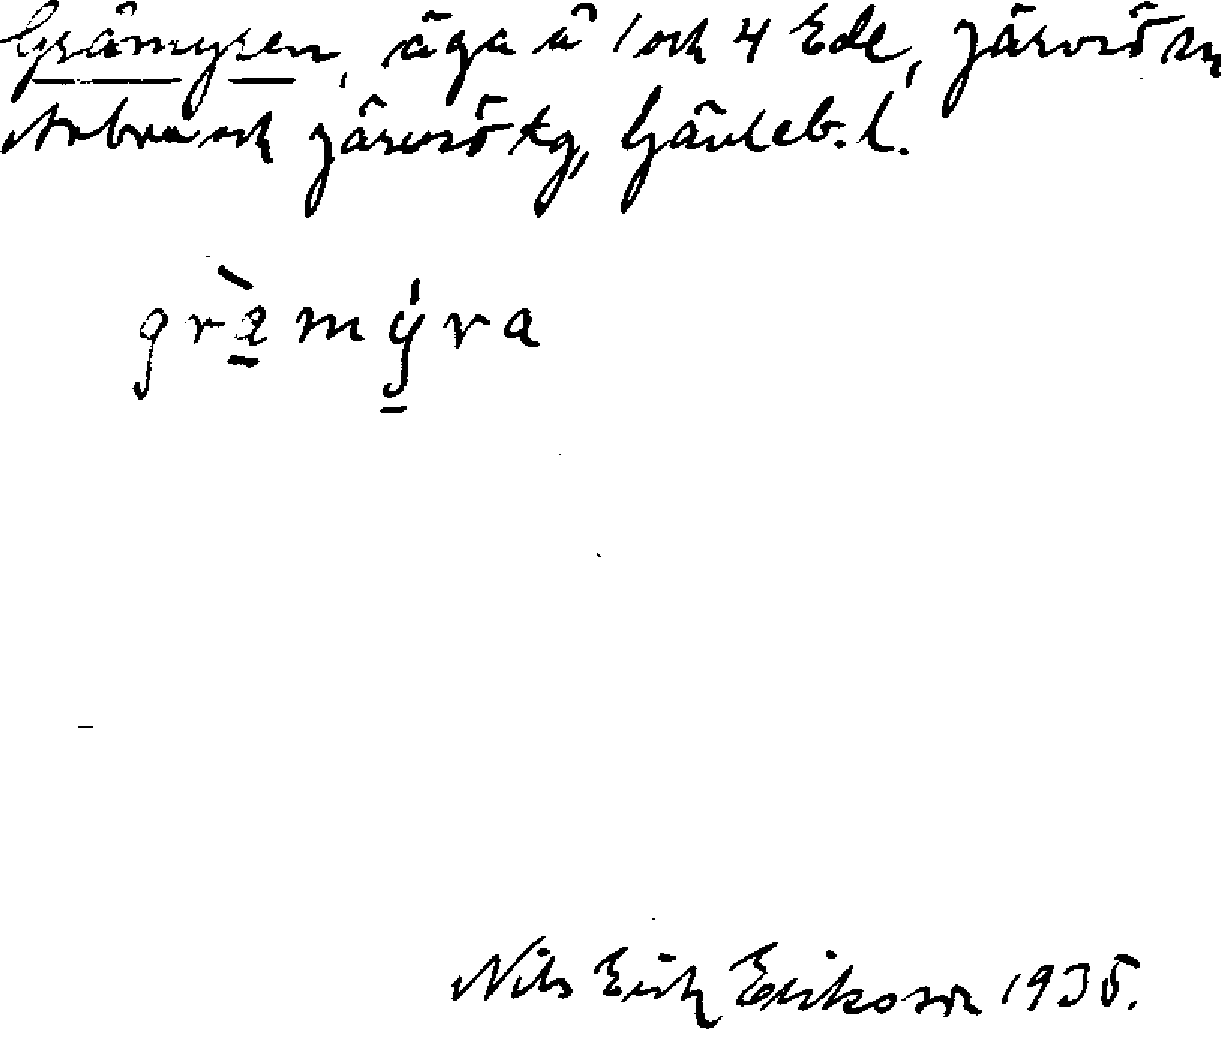 Gråmyren, äga å 1 och 4 Ede, Järvsö sn
Arbrå och Järvsö tg, Gävleb. l.
gràmýra
Nils Erik Eriksson 1935.